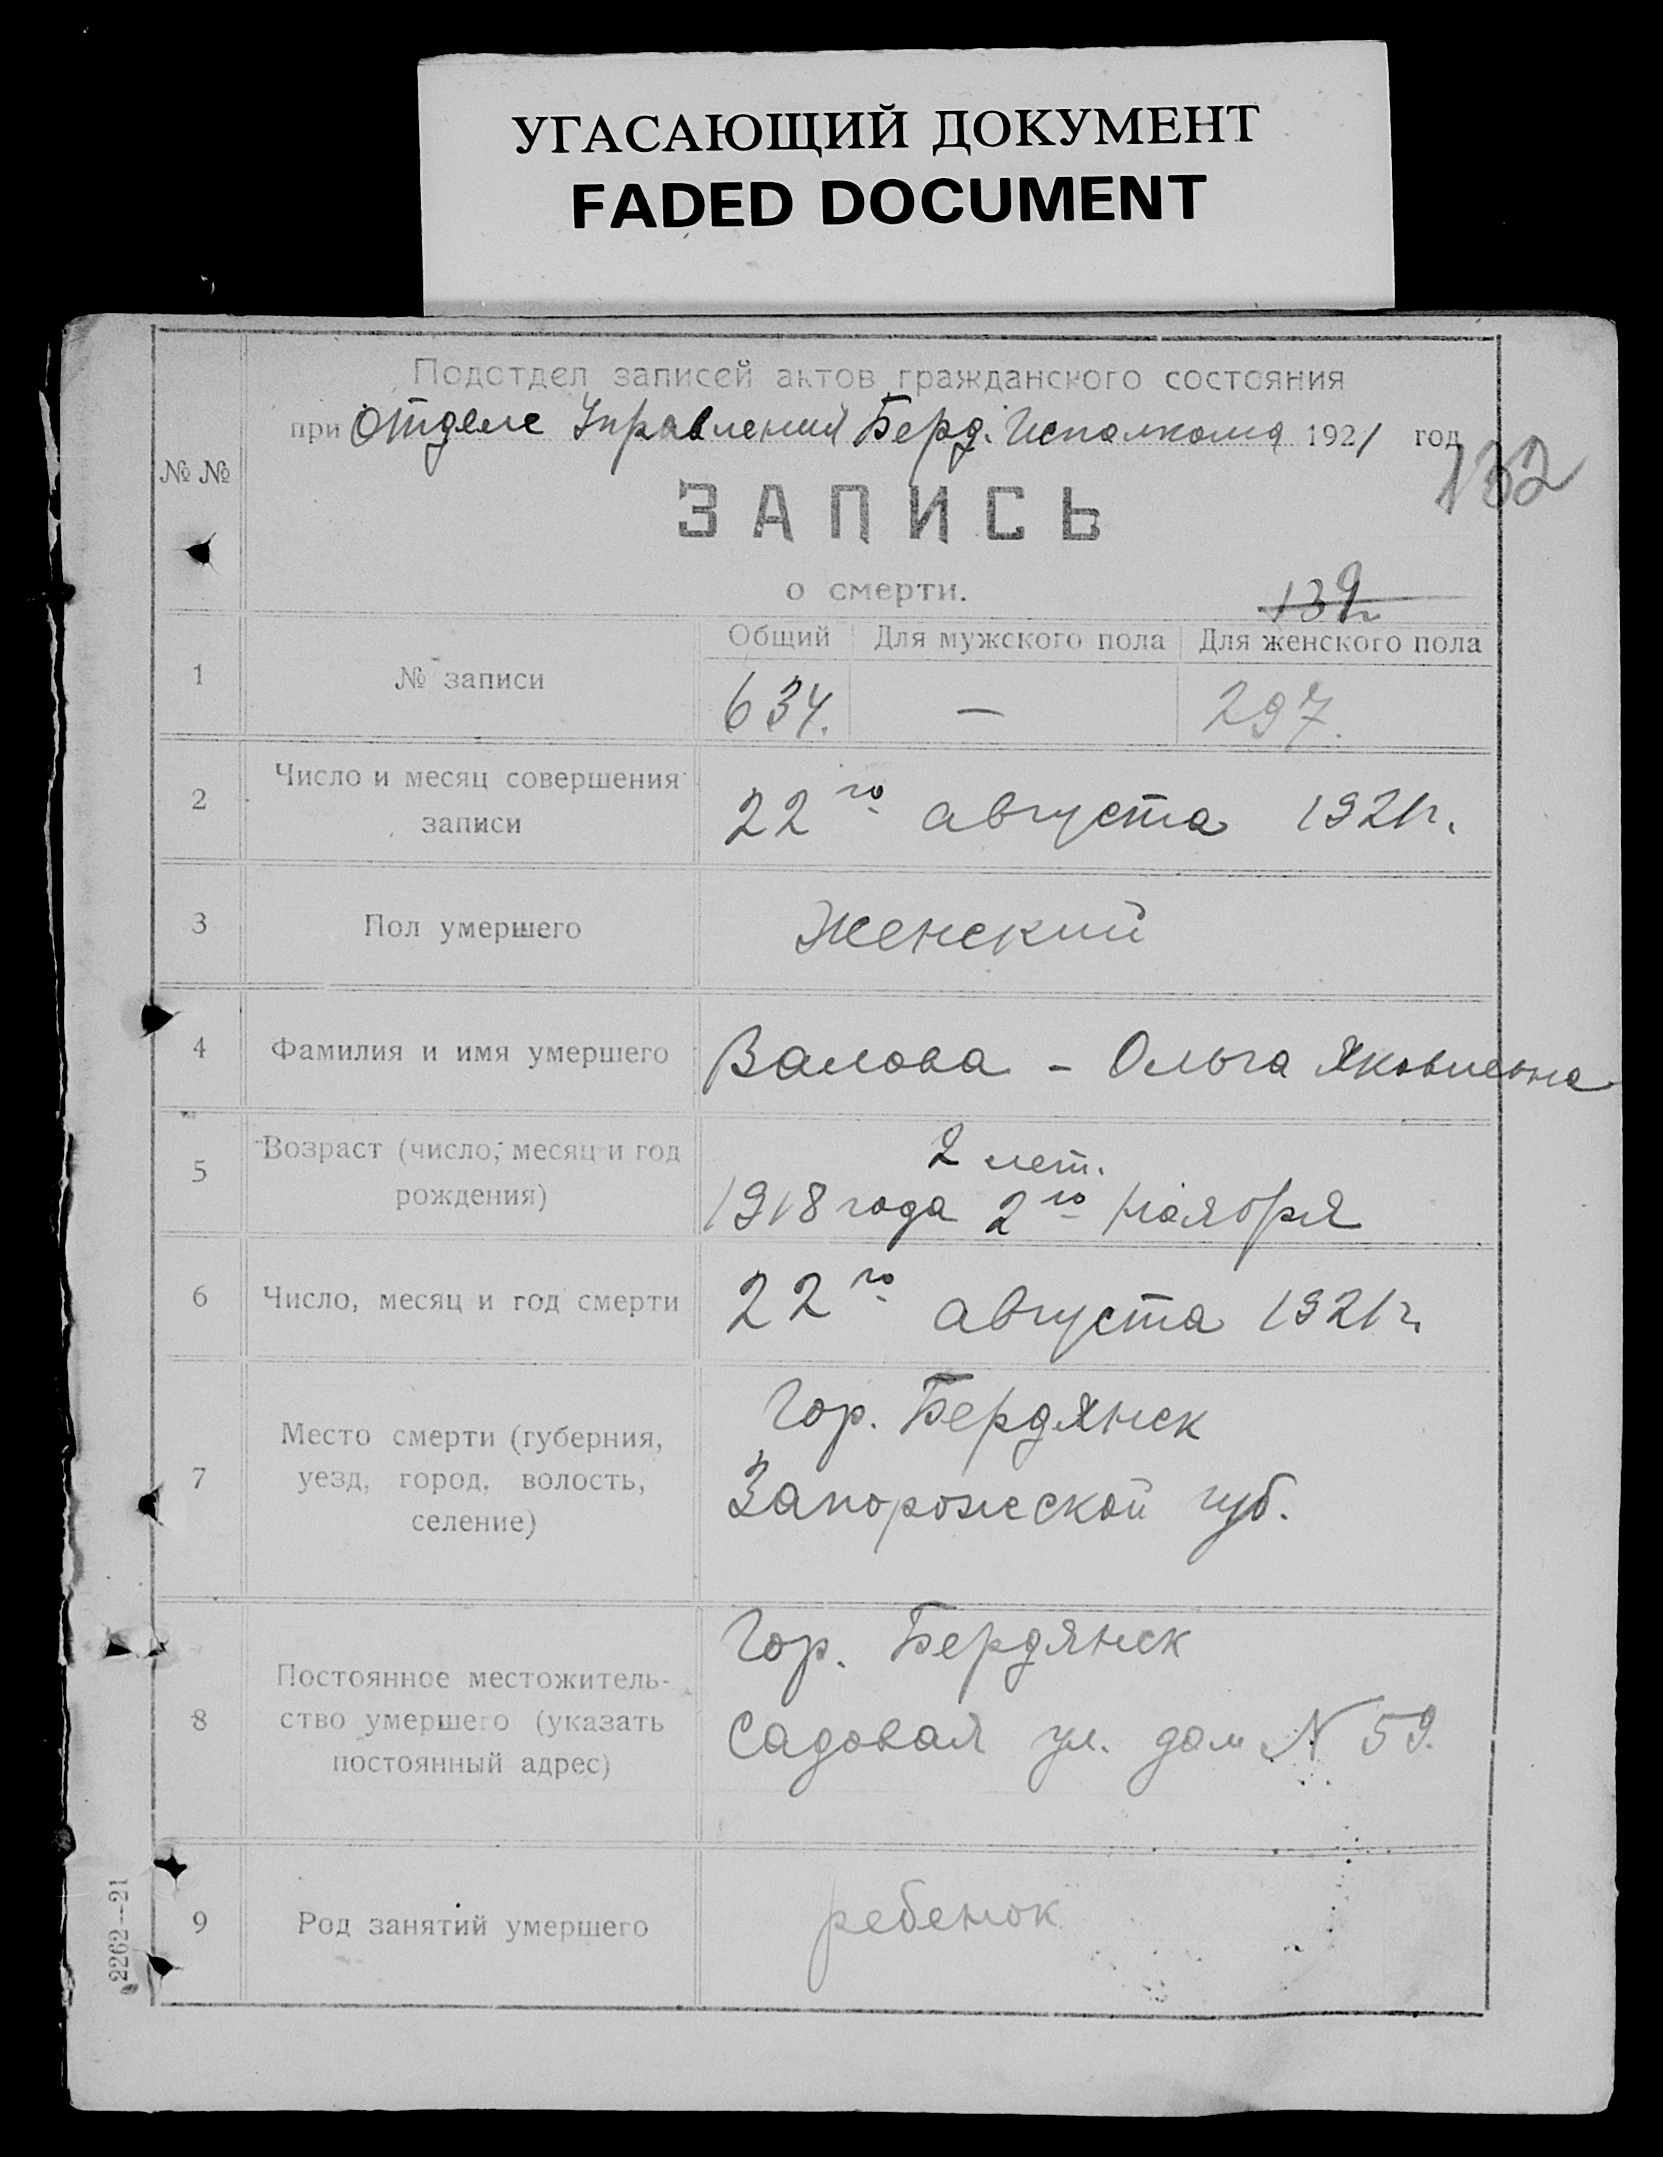 УГАСАЮЩИЙ ДОКУМЕНТ
FADED DOCUMENT
Подотдел записей актов гражданского состояния
при Отделе Управления Берд. Исполкома 1921 год
132
№ №
ЗАПИСЬ
о смерти.
139
Общий Для мужского пола Для женского пола
1 № записи 634. — 297.
2 Число и месяц совершения записи 22го августа 1921г.
3 Пол умершего Женский
4 Фамилия и имя умершего Валова - Ольга Яковлевна
5 Возраст (число, месяц и год
рождения)
2 лет.
1918 года 2го Ноября
6 Число, месяц и год смерти 22го августа 1921г.
7 Место смерти (губерния,
уезд, город, волость,
селение)
Гор. Бердянск
Запорожской губ.
8 Постоянное местожитель-
ство умершего (указать
постоянный адрес)
Гор. Бердянск
Садовая ул. дом N 59.
9 Род занятий умершего ребенок
2262—21